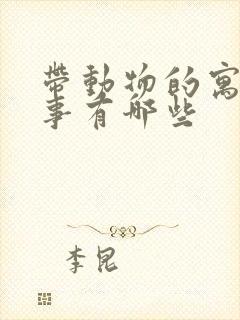 带動物的寓
事有哪些
李昆